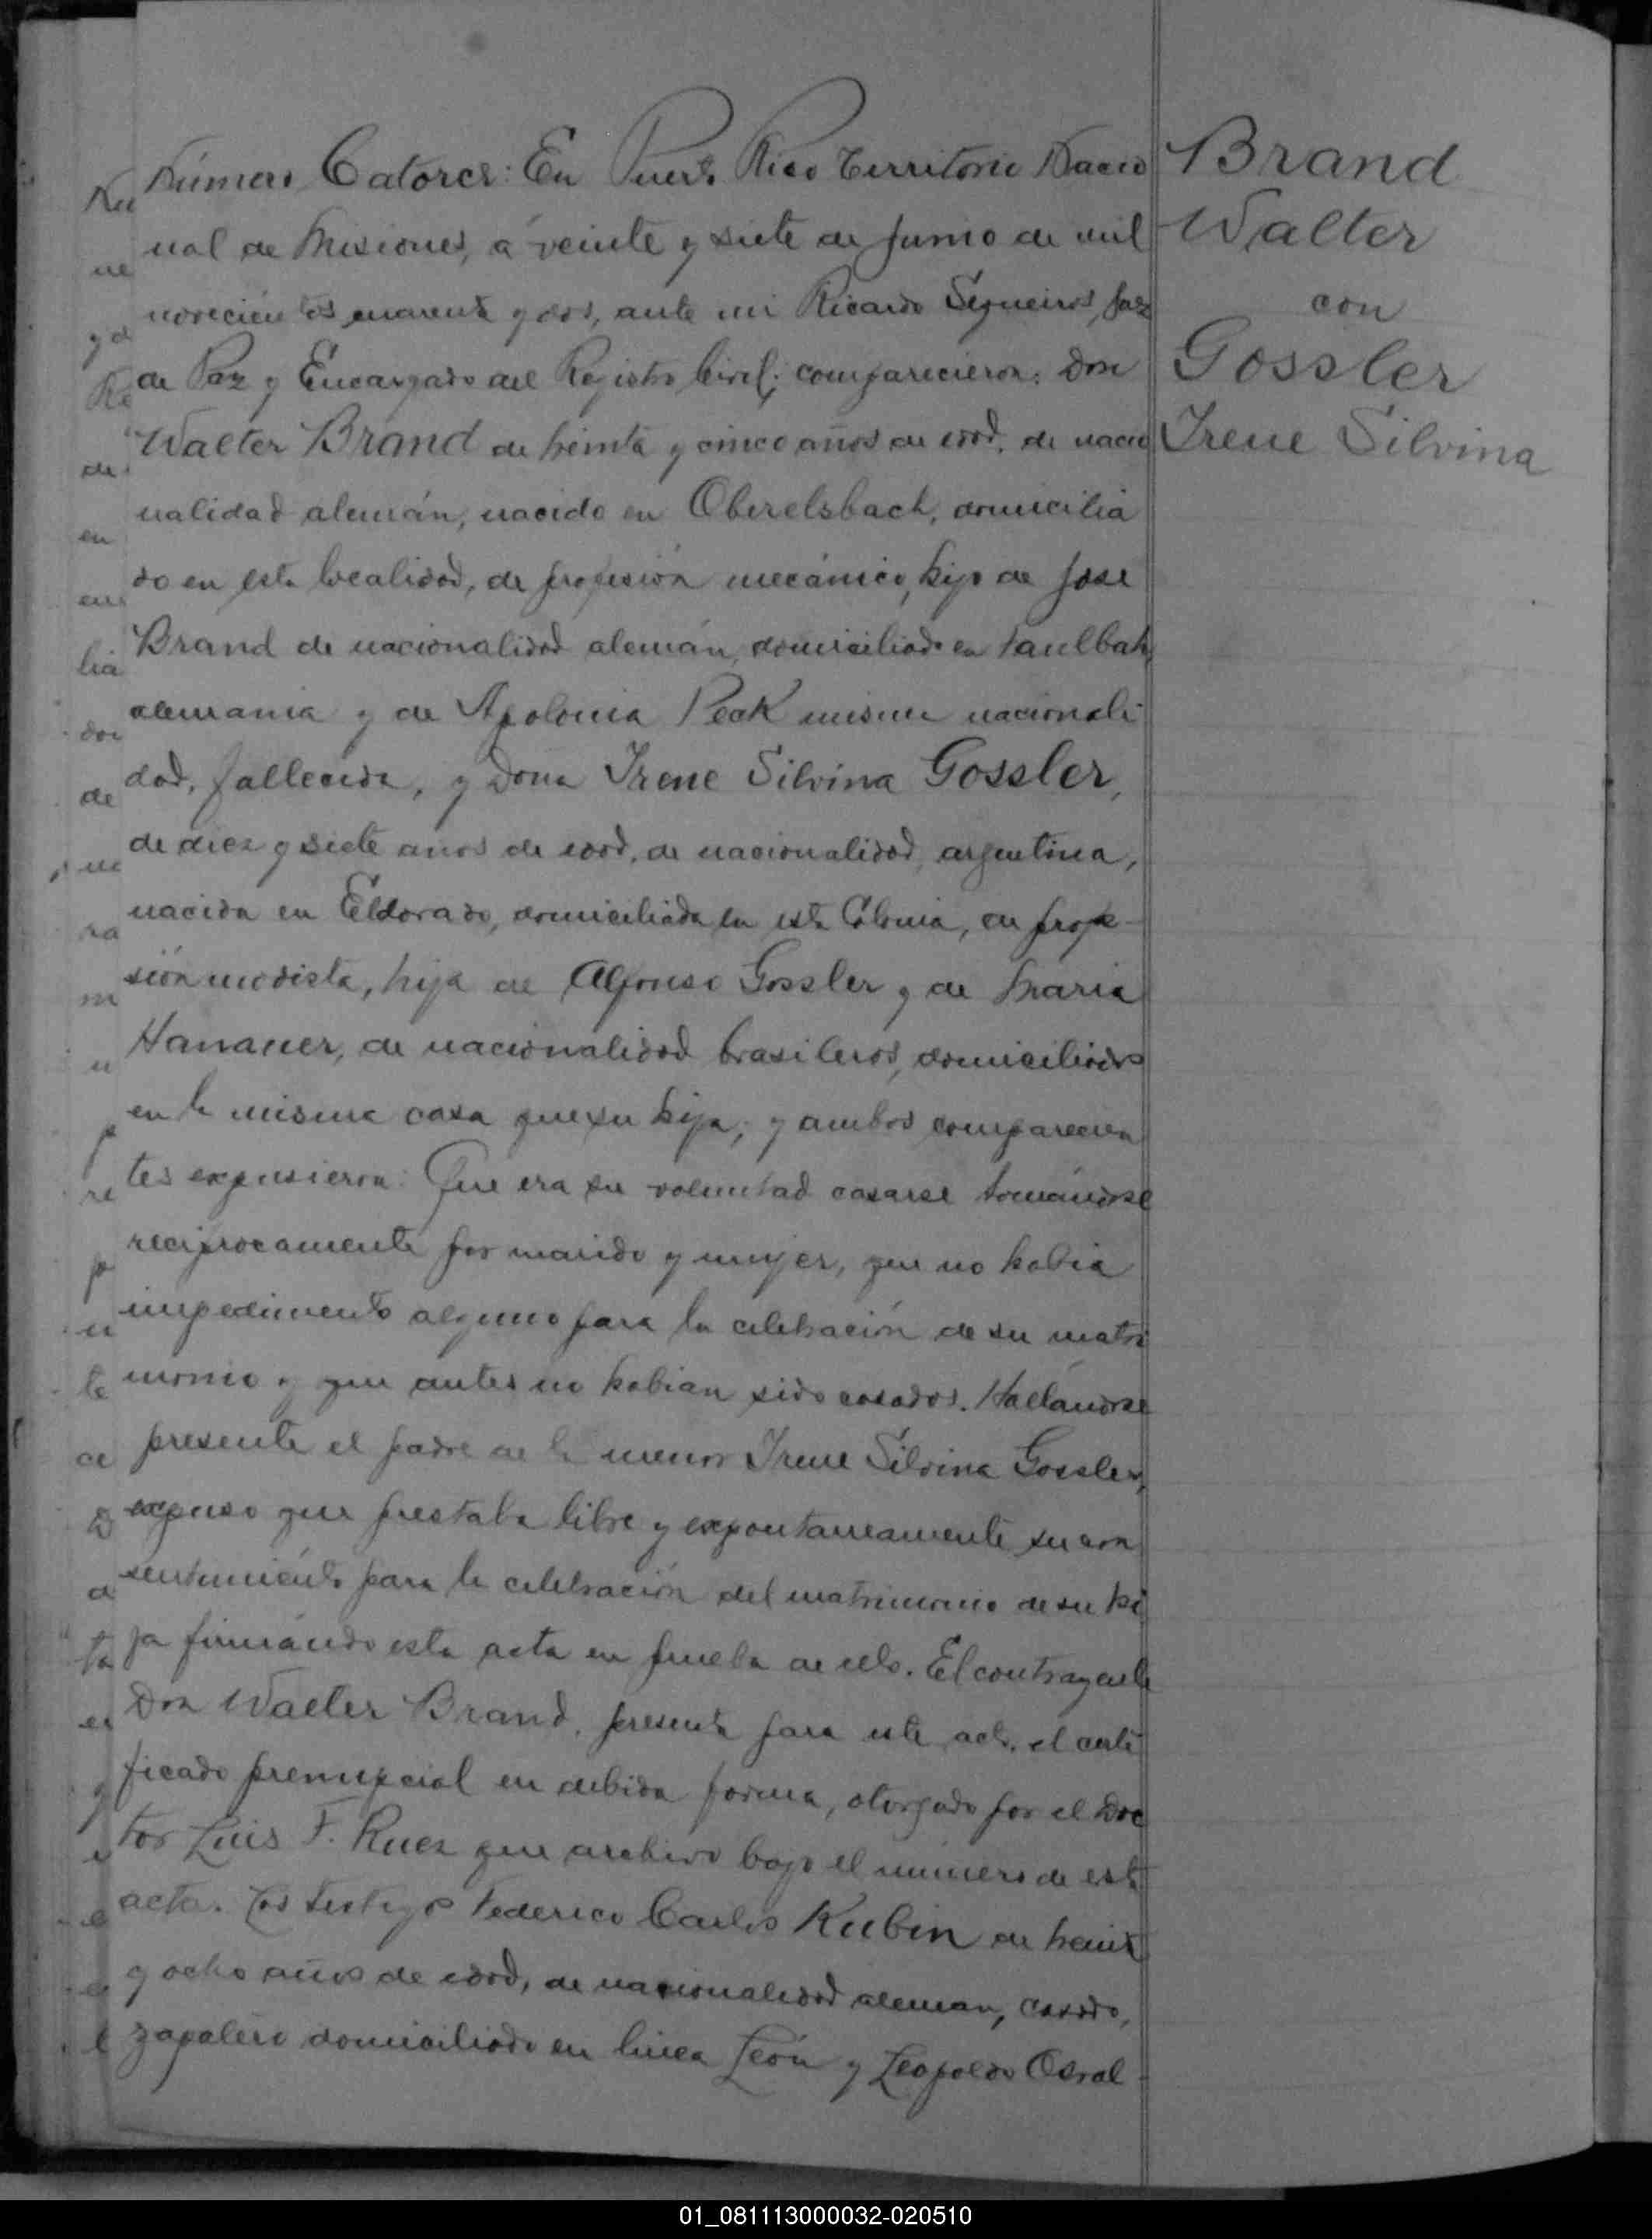 Número Catorce: En Puerto Rico Territorio Nacio
nal de Misiones, á veinte y siete de Junio de mil
novecientos cuarenta y dos, ante mi Ricardo Sequeiros, Juez
de Paz y Encargado del Registro Civil; comparecieron: Don
Walter Brand de treinta y cinco años de edad, de nacio
nalidad alemán, nacido en Oberelsbach, domicilia
do en esta localidad, de profesión mecánico, hijo de José
Brand de nacionalidad alemán, domiciliado en Faulbah,
alemania y de Apolonia Peck misma nacionali
dad, fallecida, y Doña Irene Silvina Gossler,
de diez y siete años de edad, de nacionalidad argentina,
nacida en Eldorado, domiciliada en esta Colonia, de profe-
sión modista, hija de Alfonso Gossler y de Maria
Hanauer, de nacionalidad brasileros, domiciliados
en la misma casa que su hija; y ambos comparecien
tes expusieron: Que era su voluntad casarse tomándose
reciprocamente por marido y mujer, que no habia
impedimento alguno para la celebración de su matri
monio y que antes no habian sido casados. Hallándose
presente el padre de la menor Irene Silvina Gossler,
expuso que prestaba libre y expontaneamente su con
sentimiento para la celebración del matrimonio de su hi
ja firmándo esta acta en prueba de ello. El contrayente
Don Walter Brand, presenta para este acto, el certi
ficado prenupcial en debida forma, otorgado por el Doc
tor Luis F. Ruez que archivo bajo el número de esta
acta. Los testigos Federico Carlos Kubin de treinta
y ocho años de edad, de nacionalidad aleman, casado,
zapatero domiciliado en linea León y Leopoldo Osval
Brand
Walter
con
Gossler
Irene Silvina
01_081113000032-020510